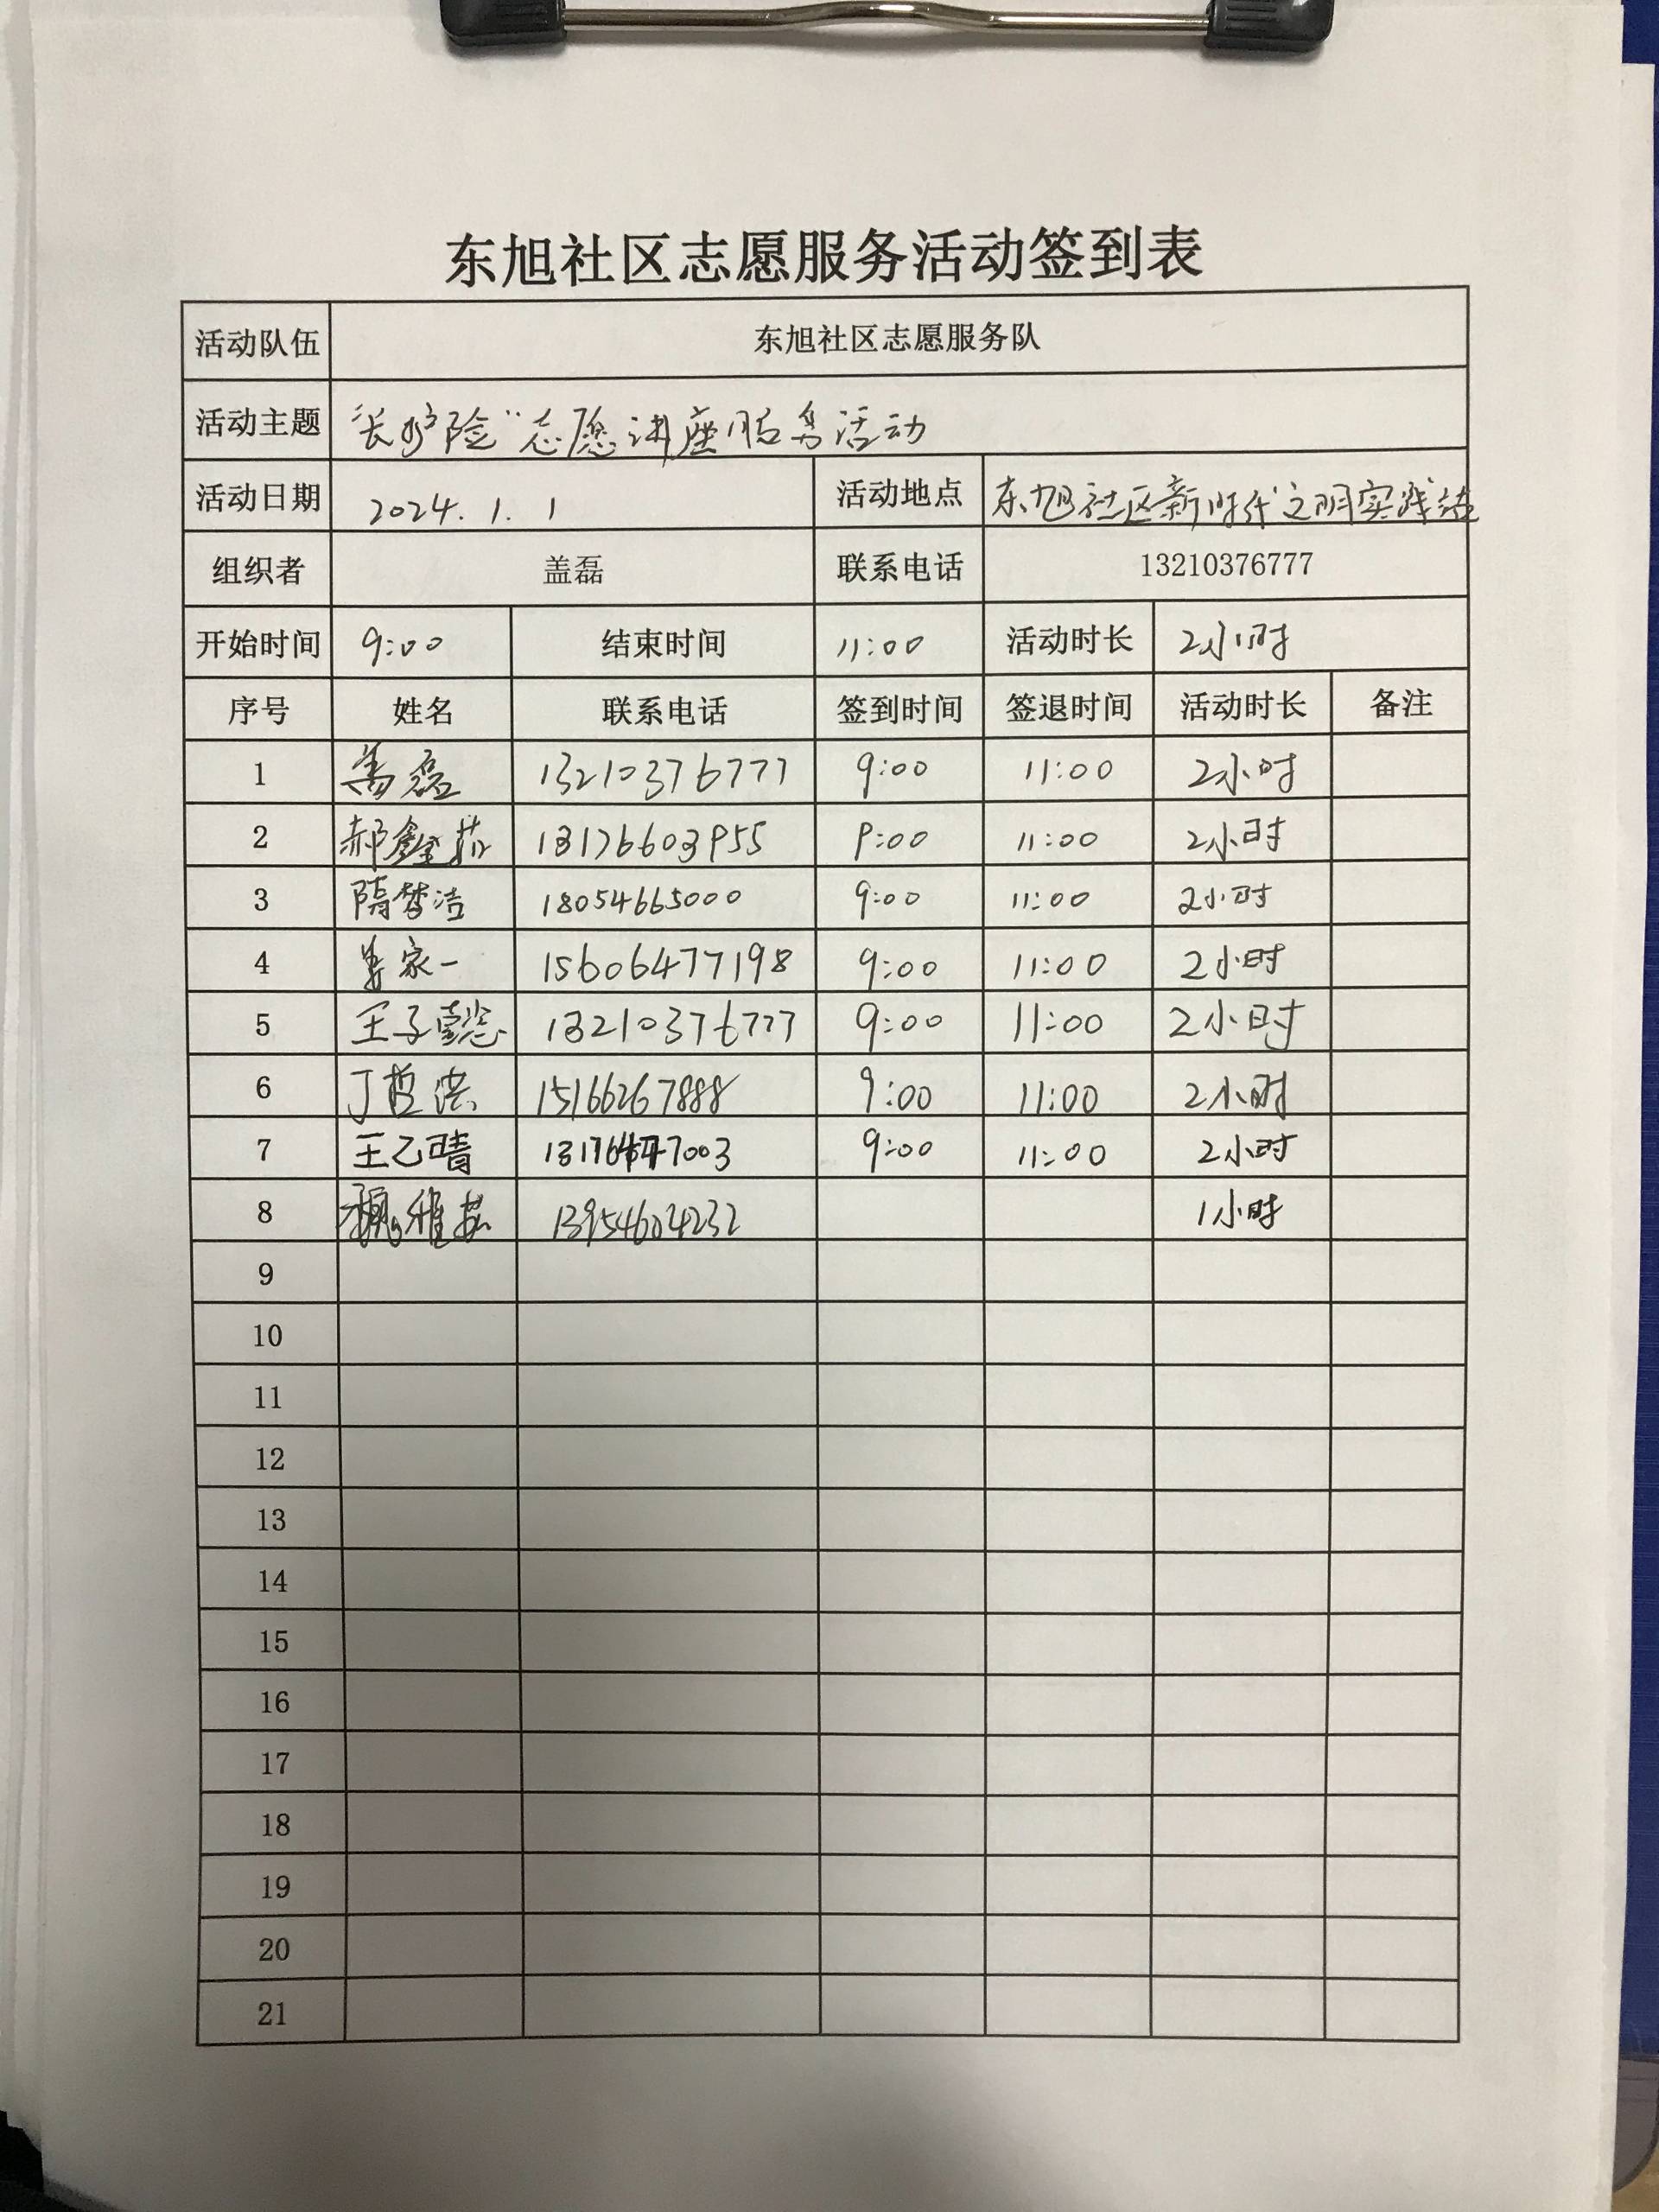 东旭社区志愿服务活动签到表
活动队伍 东旭社区志愿服务队
活动主题 “长护险”志愿讲座服务活动
活动日期 2024.1.1 活动地点 东旭社区新时代文明实践站
组织者 盖磊 联系电话 13210376777
开始时间 9:00 结束时间 11:00 活动时长 2小时
序号 姓名 联系电话 签到时间 签退时间 活动时长 备注
1 盖磊 13210376777 9:00 11:00 2小时
2 郝鑫 13176603955 9:00 11:00 2小时
3 隋梦洁 18054665000 9:00 11:00 2小时
4 家一 15606477198 9:00 11:00 2小时
5 王子懿 13210376777 9:00 11:00 2小时
6 丁哲洪 15166267888 9:00 11:00 2小时
7 王乙晴 9:00 11:00 2小时
8 魏雅 13954604232 1小时
9
10
11
12
13
14
15
16
17
18
19
20
21